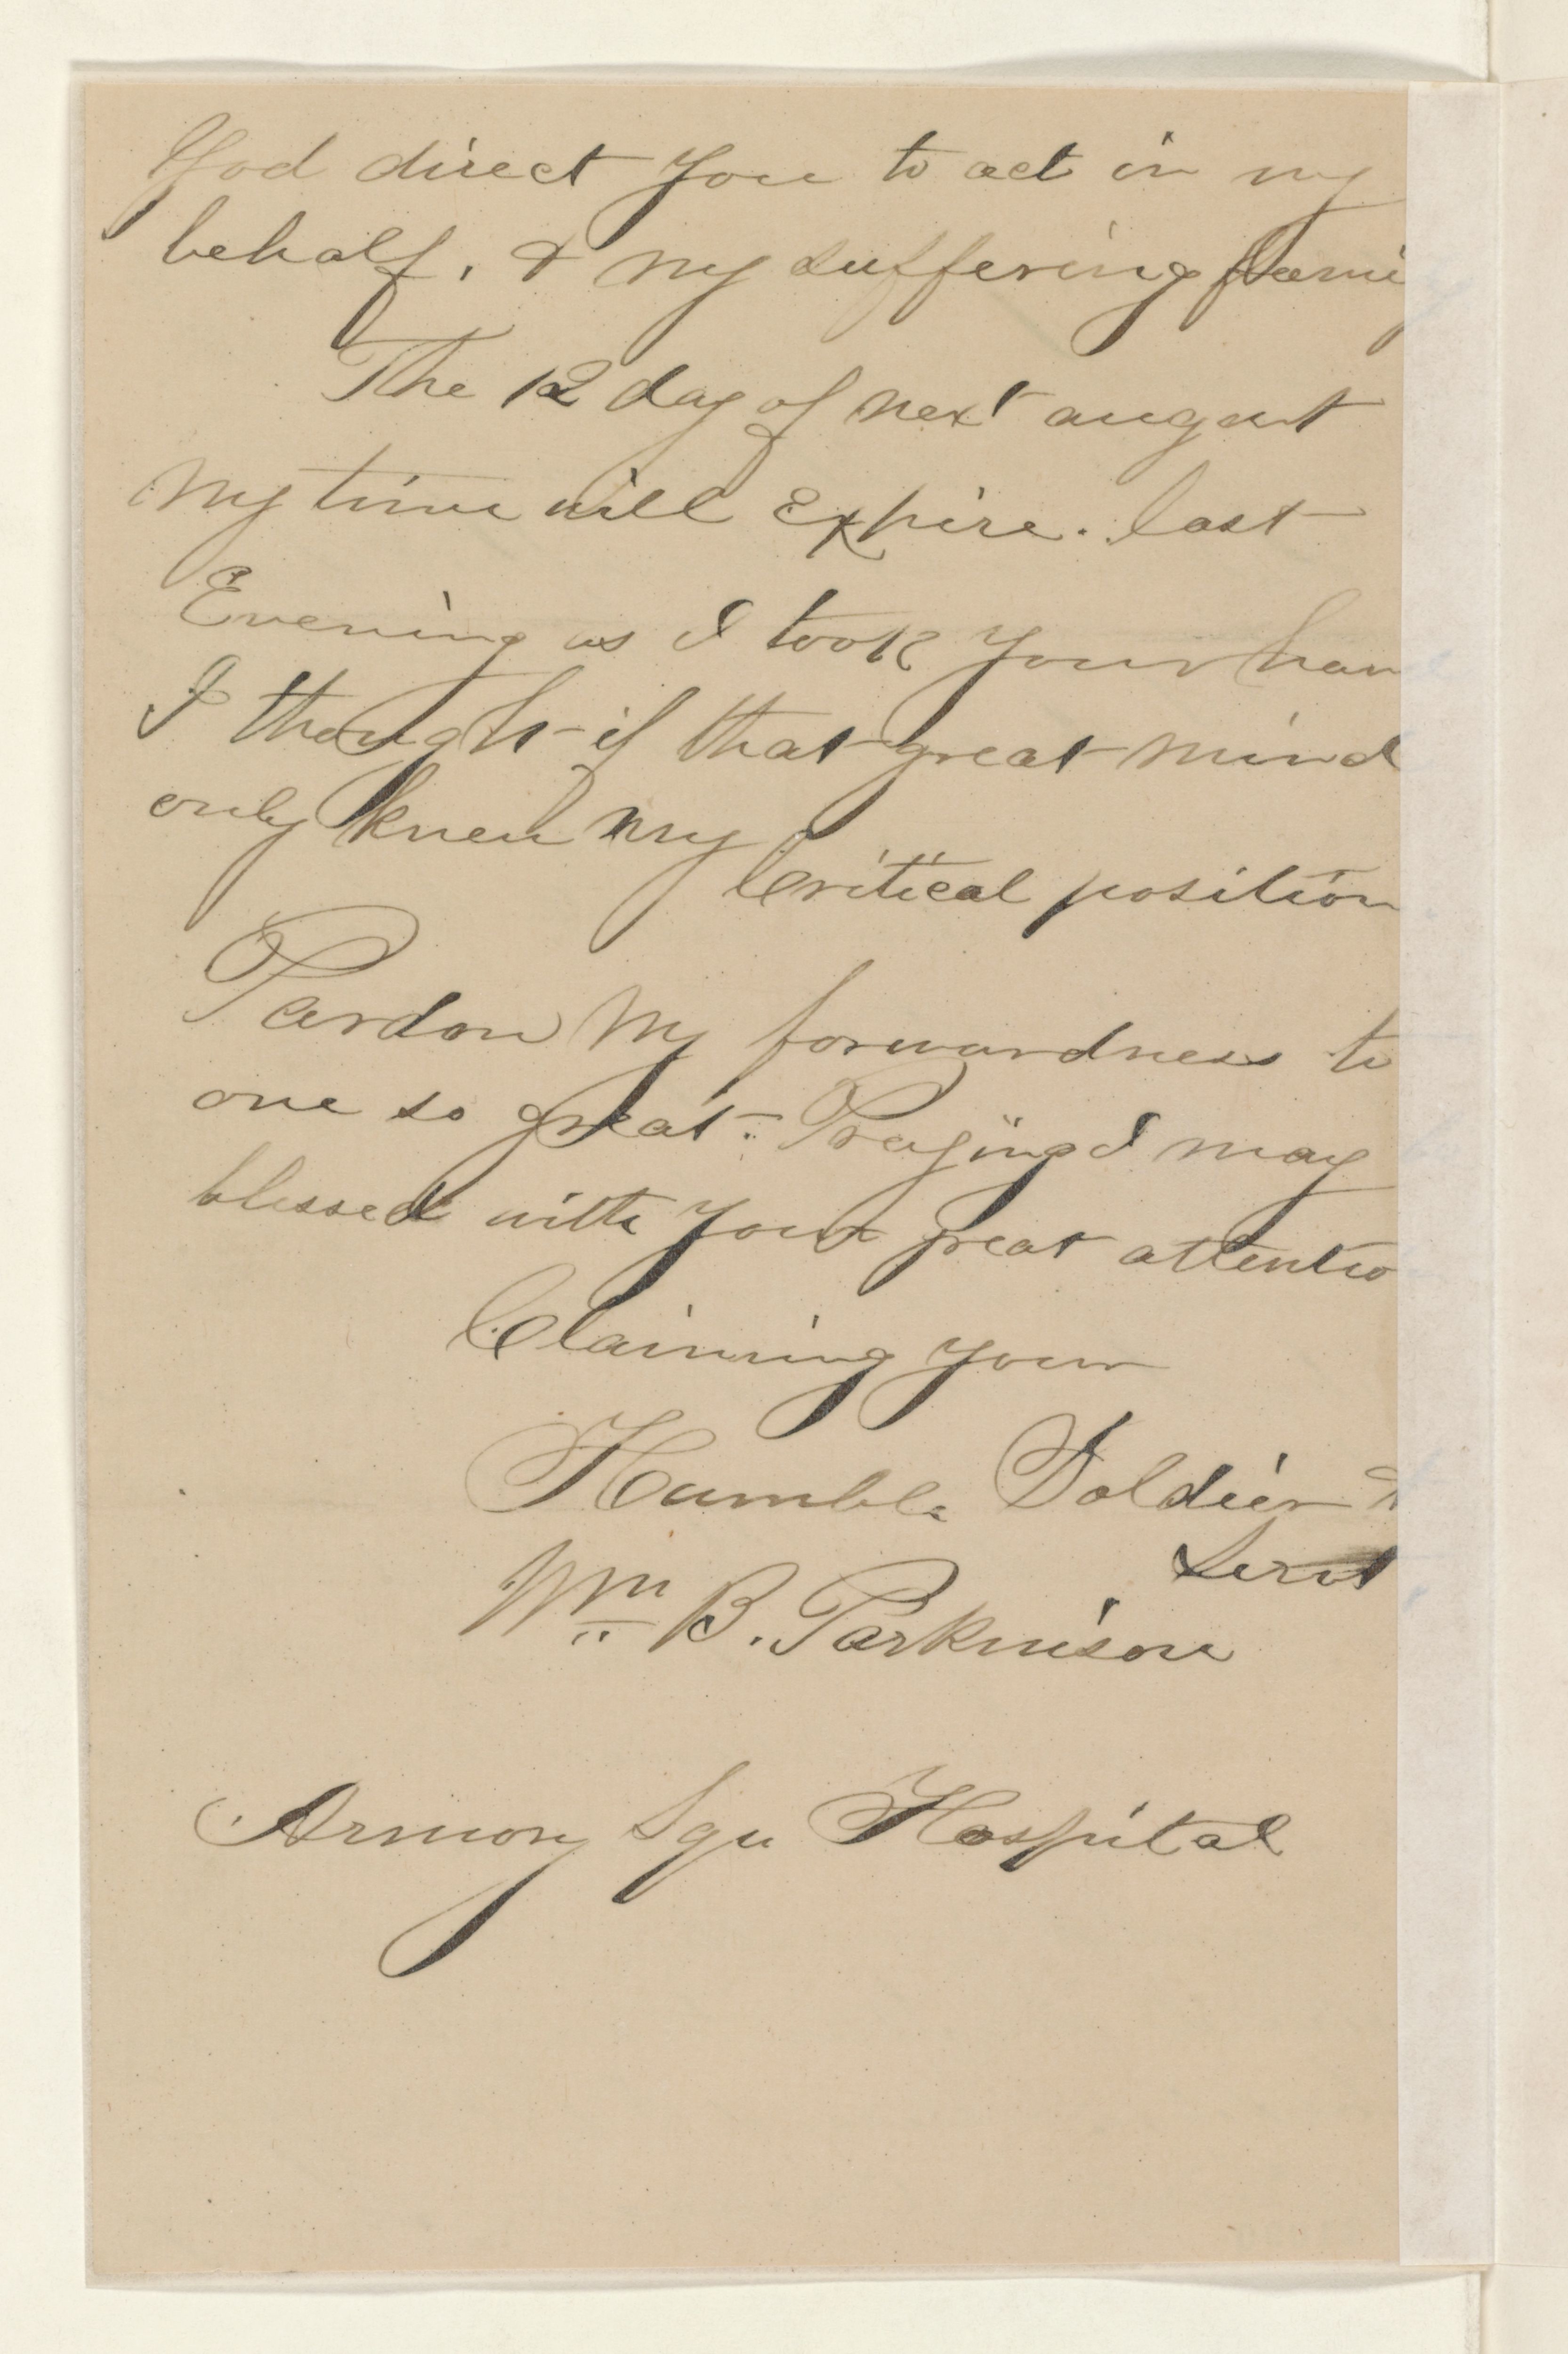 God direct you to act in my
behalf, & my suffering fami
The 12 day of next august
My time will Expire. last
Evening as I took your han
I thought if that great mind
only knew my
Critical position
Pardon My forwardness to
one so great. Praying I may
blessed with your great attentio
Claiming your
Humble Soldier &
Servt
Wm B. Parkinson
Armory Squ Hospital